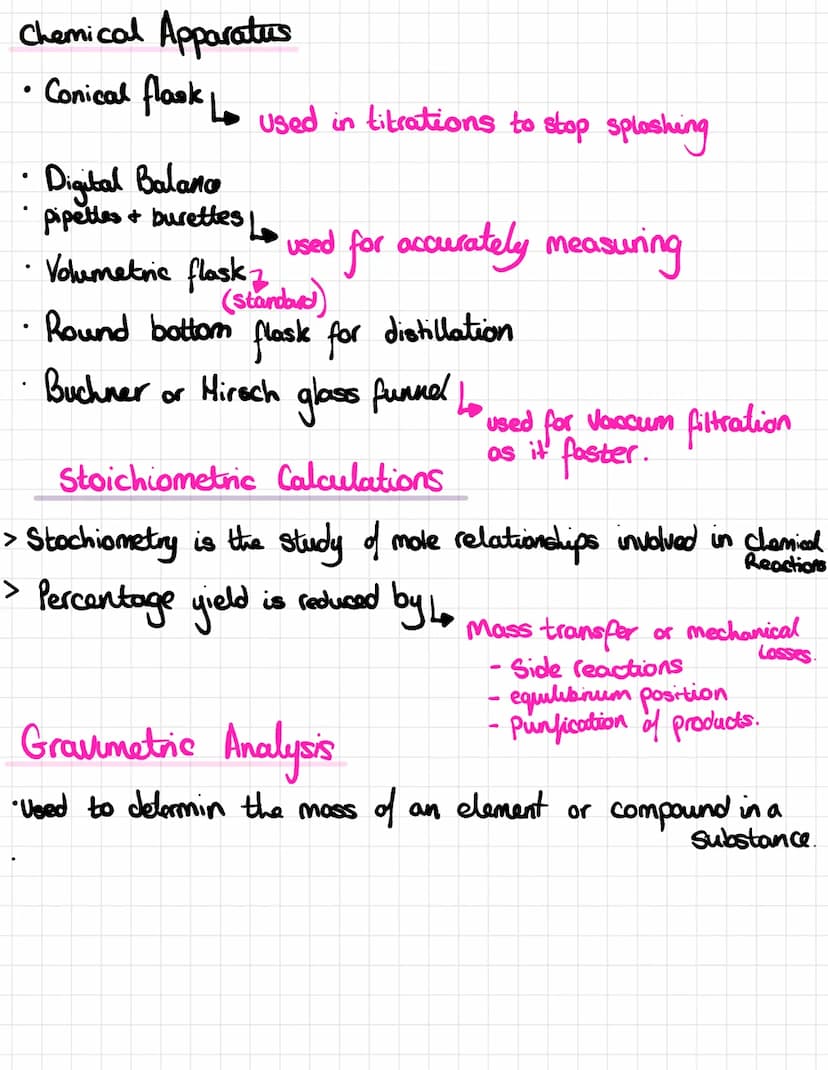 Chemical Apparatus
· Conical flask ↳ used in titrations to stop splashing
· Digital Balance
· pipettes + burettes ↳ used for accurately measuring
· Volumetric flask
(standard)
· Round bottom flask for distillation
· Buchner or Hirsch glass funnel ↳ used for Vaccum filtration
as it faster.
Stoichiometric Calculations
> Stochiometry is the study of mole relationships involved in Chemical
Reactions
> Percentage yield is reduced by ↳ Mass transfer or mechanical
Losses.
- Side reactions
- equilibrium position
- Purification of products.
Gravimetric Analysis
· Used to determin the mass of an element or compound in a
substance.
·